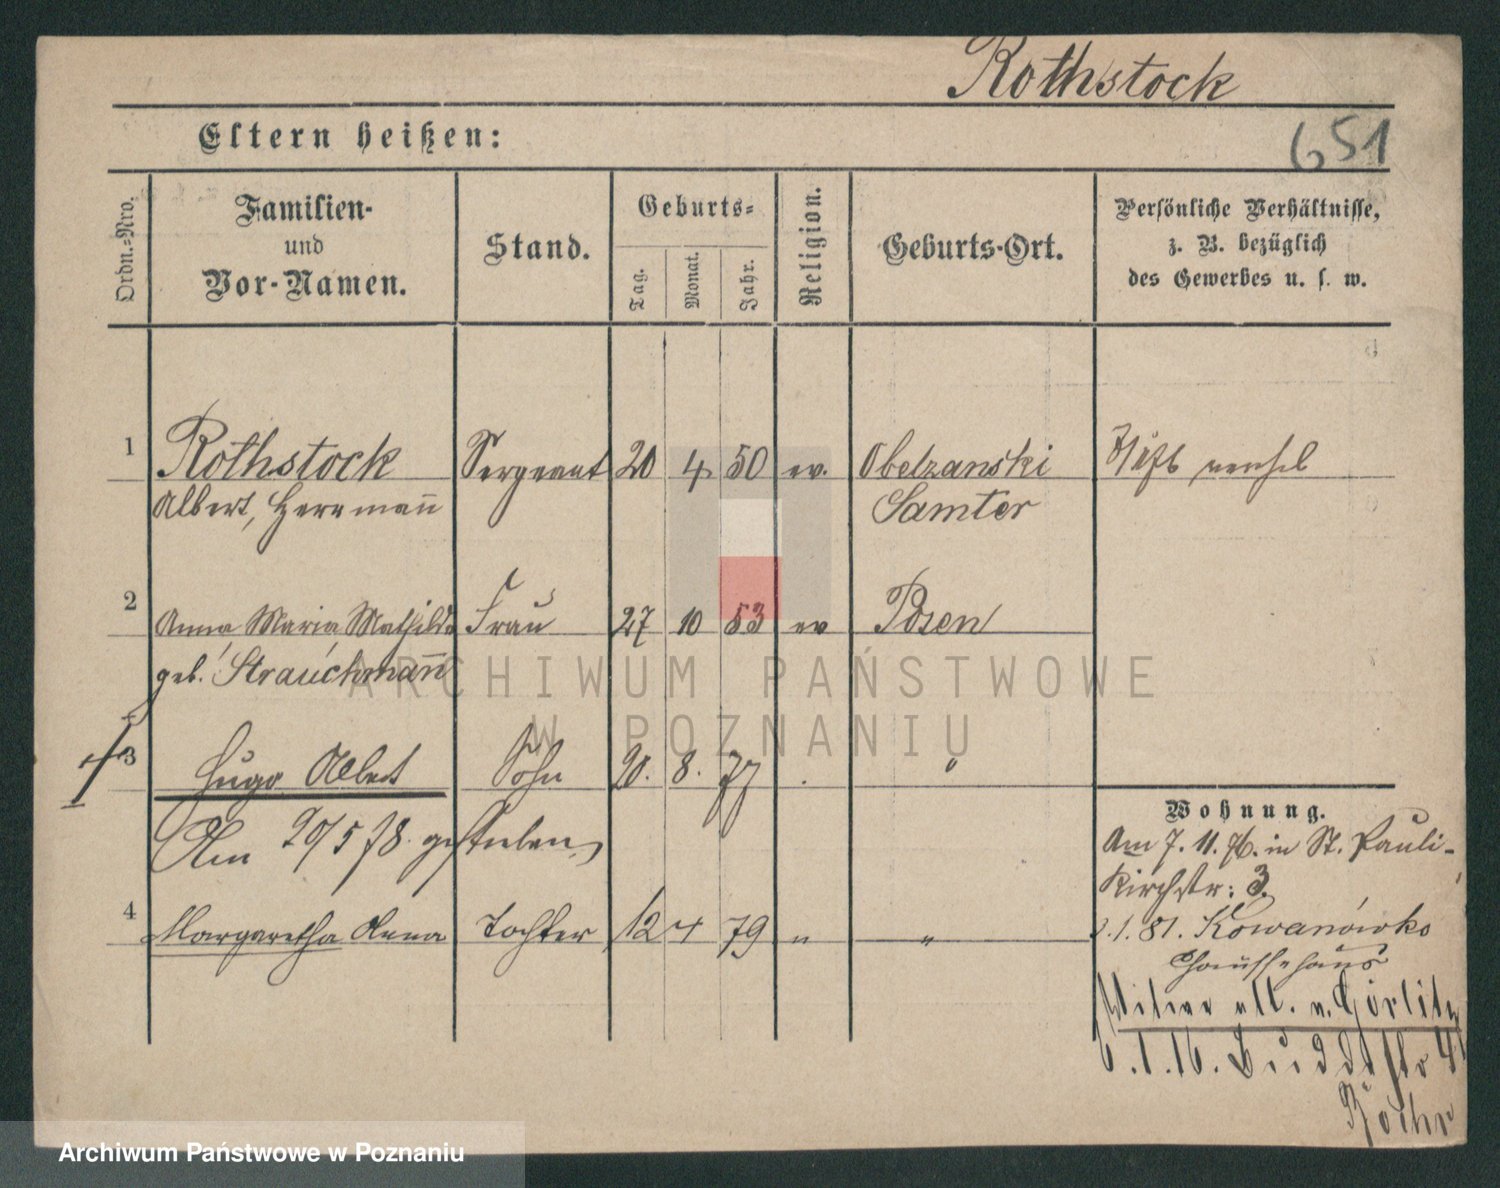 Rothstock
651
Eltern heißen:
Ordn.-Nro.
Familien-
und
Vor-Namen.
Stand.
Geburts-
Tag.
Monat.
Jahr.
Religion.
Geburts-Ort.
Persönliche Verhältnisse,
z. B. bezüglich
des Gewerbes u. s. w.
1 Rothstock Sergeant 20 4 50 ev. Obelzanski
Albert, Herrmañ Samter
2 Anna Maria Mathilde Frau 27 10 53 ev Posen
geb. Strauchmañ
3 Hugo Albert Sohn 20. 8. 77 "
Am 20/5 78. gestorben
4 Margaretha Anna Tochter 12 4 79 " "
Wohnung.
Am 7. 11. 76. in St. Pauli-
Kirchstr: 3.
1. 81. Kowanówko
Chausseehaus
Witwe v. Görlitz
6. 1. 16.
ARCHIWUM PAŃSTWOWE
W POZNANIU
Archiwum Państwowe w Poznaniu